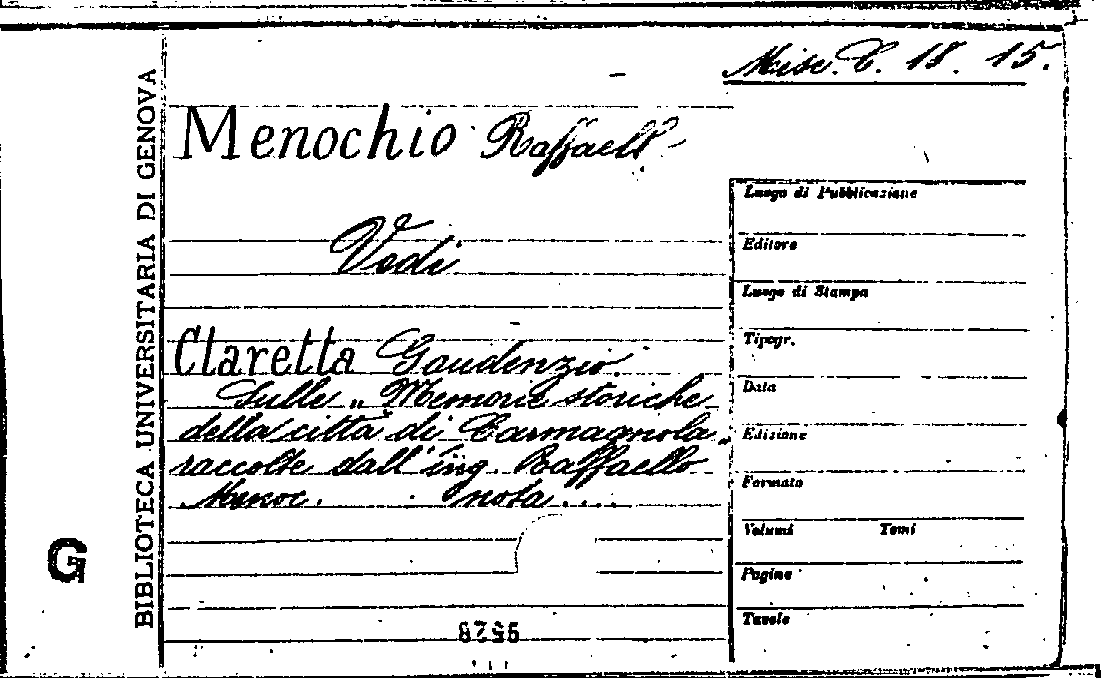 Misc. C. 18. 15.
BIBLIOTECA UNIVERSITARIA DI GENOVA
Menochio Raffaell
Vedi
Claretta Gaudenzio.
Sulle „ Memorie storiche
della città di Carmagnola „
raccolte dall'ing. Raffaello
Menoc. nota....
G
Luogo di Pubblicazione
Editore
Luogo di Stampa
Tipogr.
Data
Edizione
Formato
Volumi Tomi
Pagine
Tavole